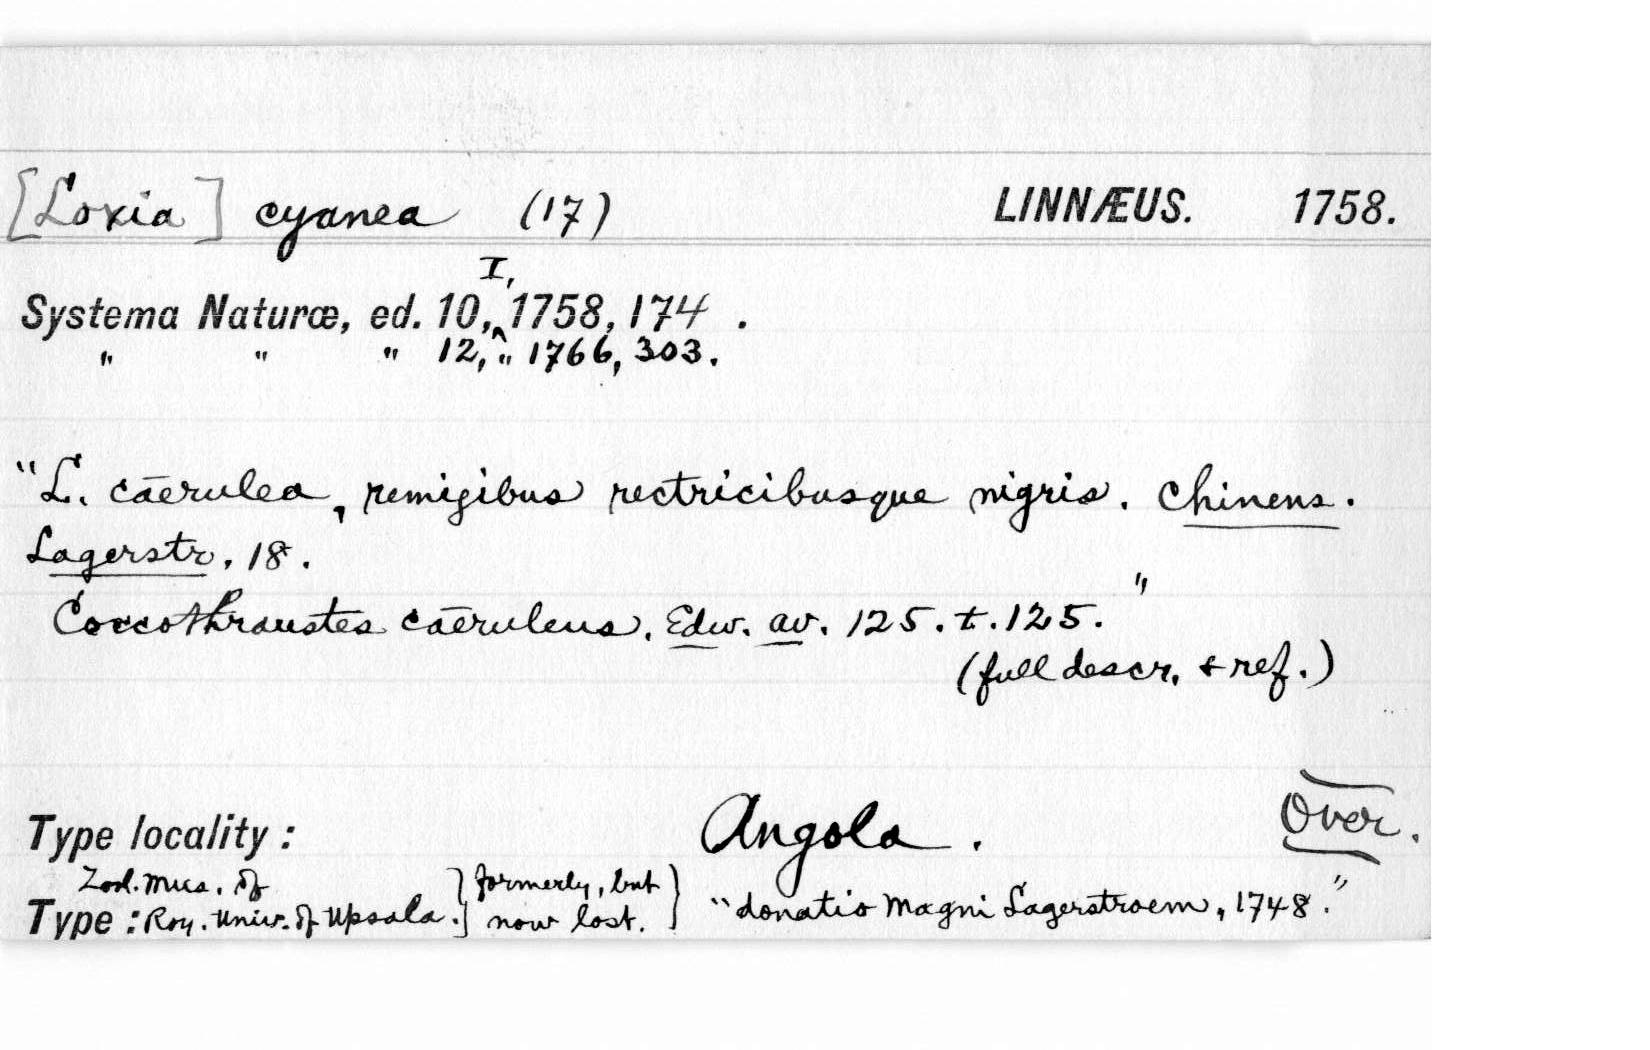 [Loxia] cyanea (17) LINNÆUS. 1758.
Systema Naturæ, ed. 10, I, 1758, 174.
" " " 12, " 1766, 303.
"L. cāerulea, remigibus rectricibusque nigris. Chinens.
Lagerstr. 18.
Coccothraustes cāeruleus. Edw. av. 125. t. 125."
(full descr. & ref.)
Type locality: Angola.
Over.
Zool. Mus. of
Type: Roy. Univ. of Upsala.} formerly, but now lost.} "donatio Magni Lagerstroem, 1748."